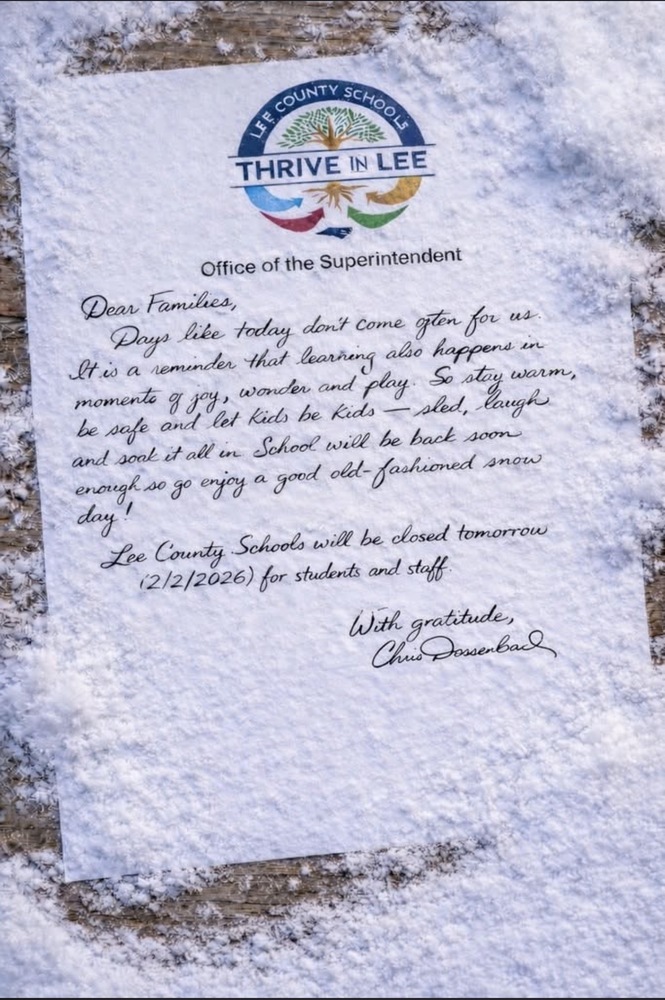 LEE COUNTY SCHOOLS
THRIVE IN LEE
Office of the Superintendent
Dear Families,
Days like today don't come often for us.
It is a reminder that learning also happens in
moments of joy, wonder and play. So stay warm,
be safe and let Kids be Kids — sled, laugh
and soak it all in School will be back soon
enough so go enjoy a good old-fashioned snow
day!
Lee County Schools will be closed tomorrow
(2/2/2026) for students and staff.
With gratitude,
Chris Dossenbach